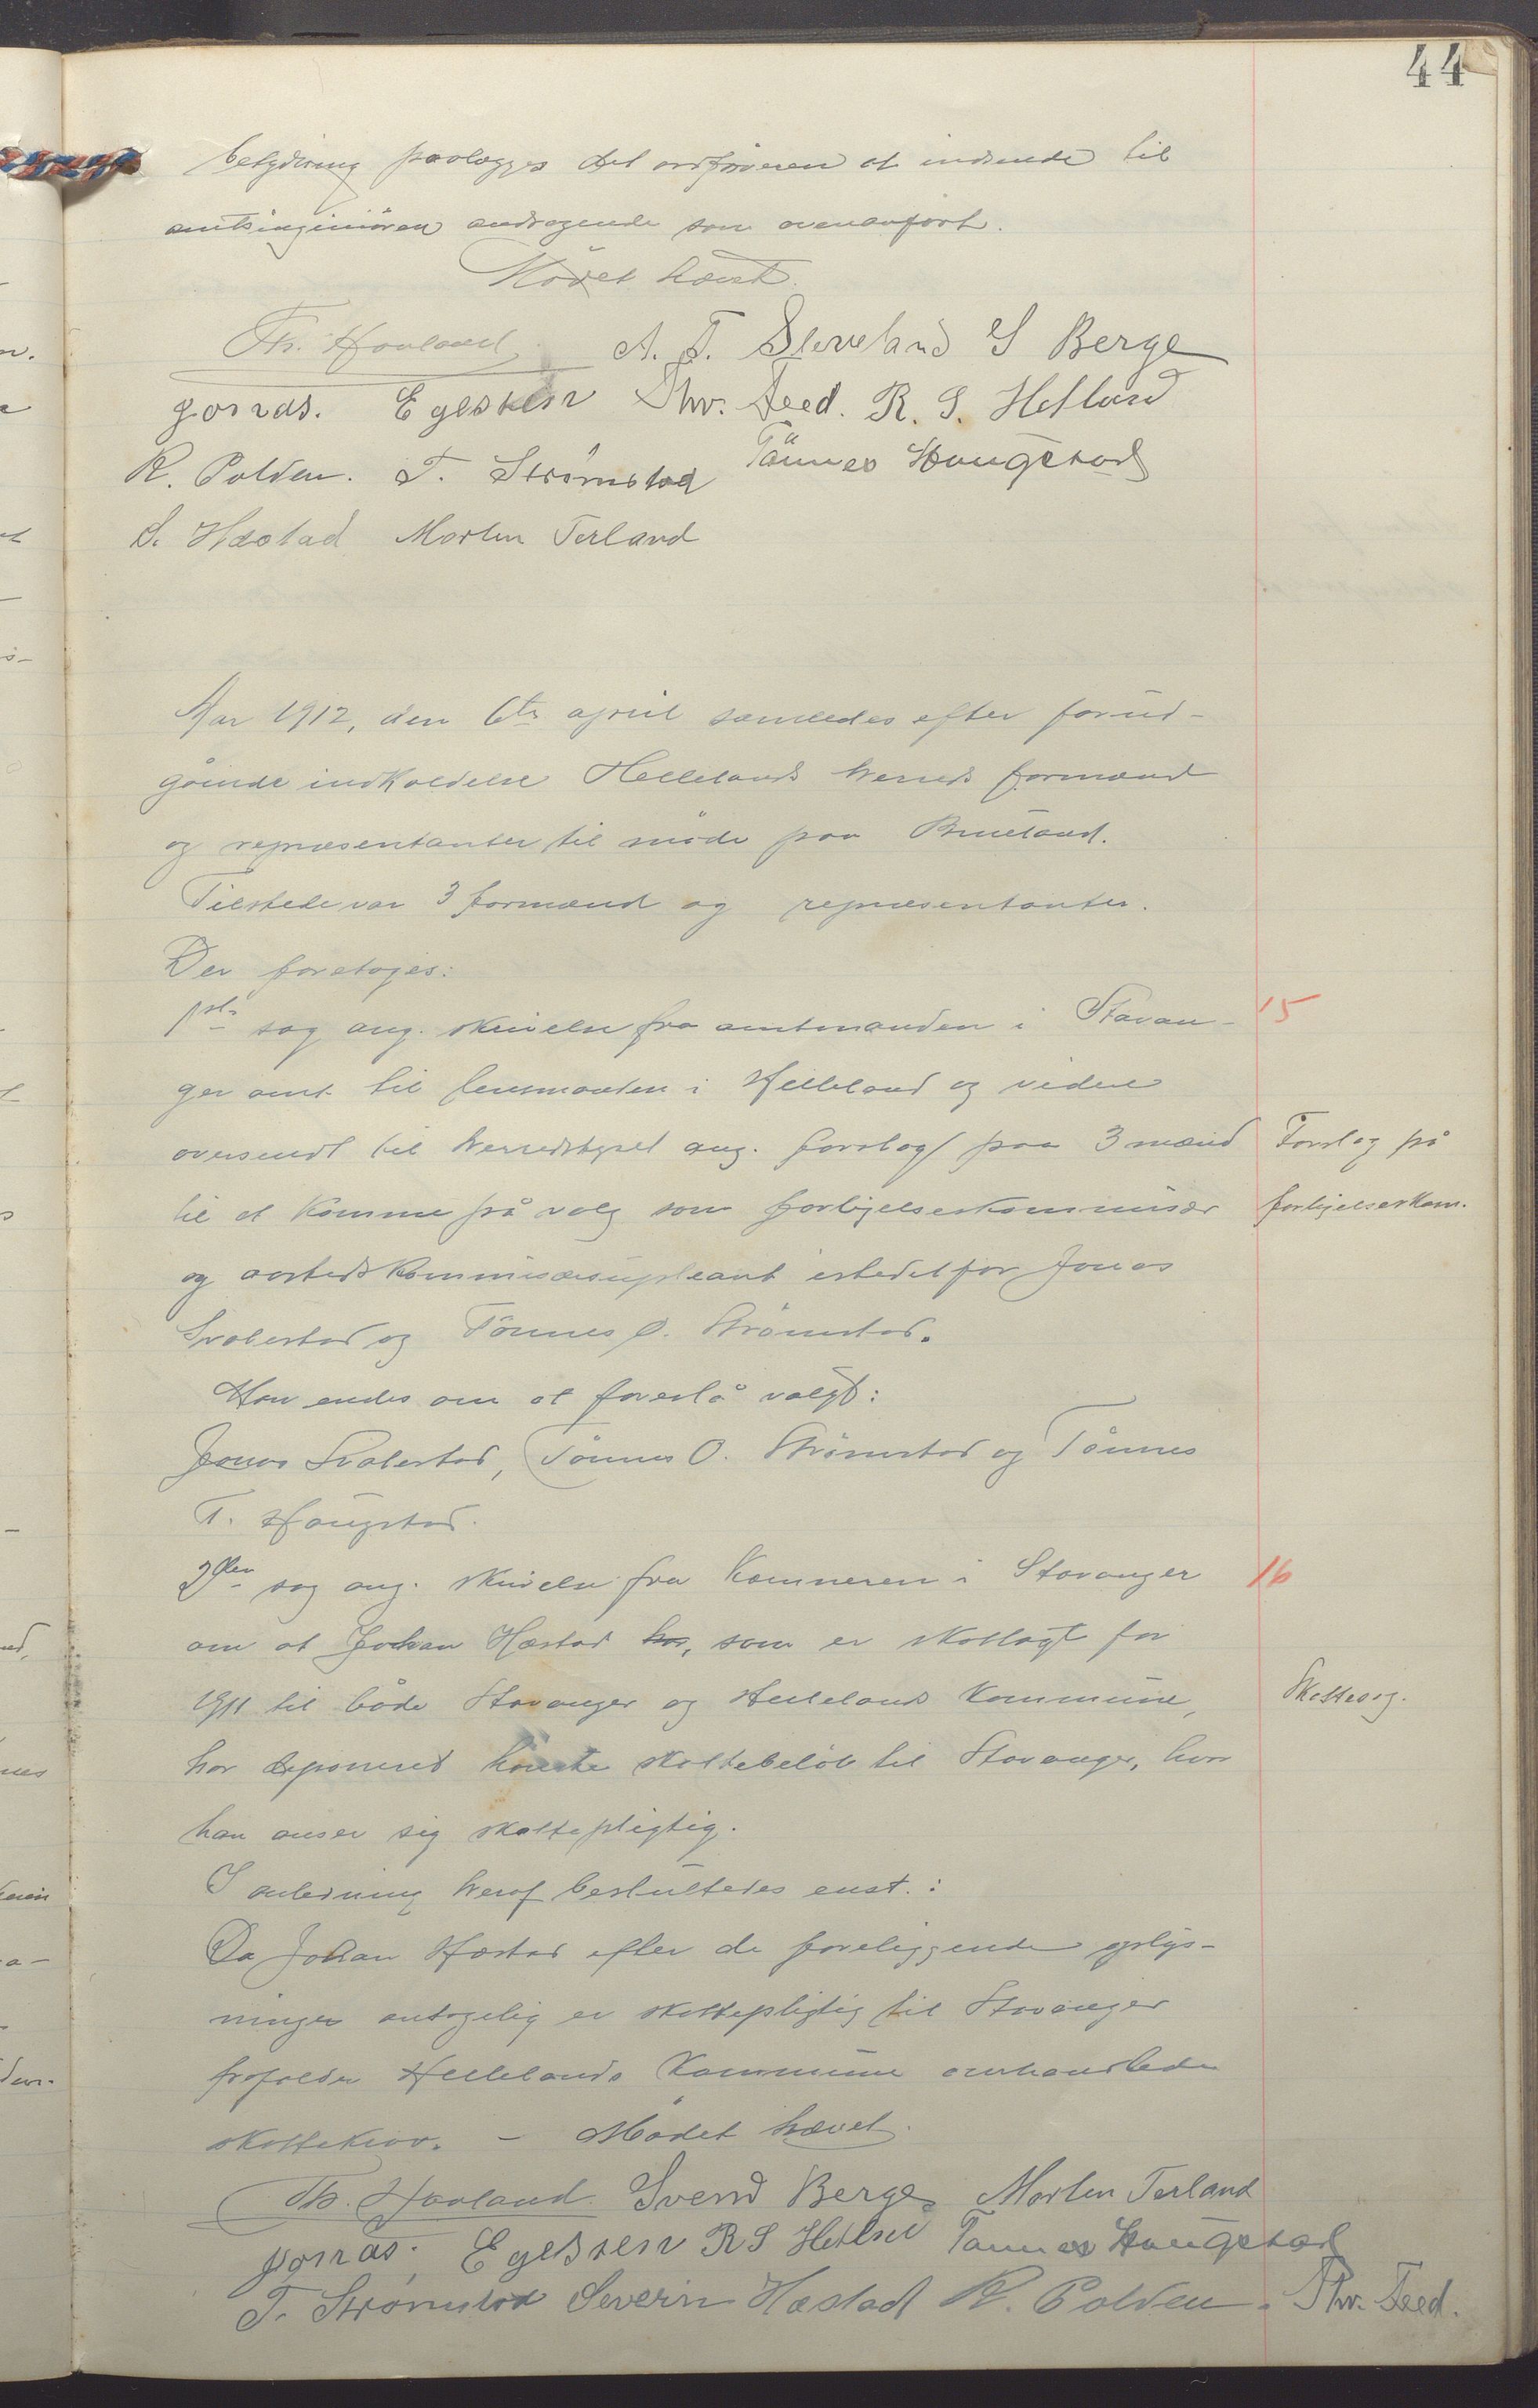 44
betydning paalægges det ordföreren at indsende til
amtsingeniören andragende som ovenanfört.
Mödet hævet.
Th. Haaland A. T. Sleveland S Berge
Jonas. Egelsæter Thv. Seed. R. S. Hetland
R. Polden. T. Strömstad Tönnes Haugstad
S. Hæstad Morten Terland
Aar 1912, den 6te april samledes efter forud-
gående indkaldelse Hellelands herreds formænd
og repræsentanter til möde paa Brueland.
Tilstede var 3 formænd og repræsentanter.
Der foretoges:
1ste sag ang. skrivelse fra amtmanden i Stavan- 15
ger amt til lensmanden i Helleland og videre
oversendt til herredstyret ang. forslag paa 3 mænd Forslag på
til at komme på valg som forligelseskommisær forligelseskom.
og aasteds kommisærsupleant istedetfor Jonas
Svalestad og Tönnes O. Strömstad.
Man enedes om at foreslå valgt:
Jonas Svalestad, Tönnes O. Strömstad og Tönnes
T. Haugstad.
2den sag ang. skrivelse fra Kæmneren i Stavanger 16
om at Johan Hæstad har, som er skatlagt for
1911 til både Stavanger og Hellelands kommune, Skattesag.
har deponeret höieste skattebelöb til Stavanger, hvor
han anser sig skattepligtig.
I anledning herof besluttedes enst.:
Da Johan Hæstad efter de foreliggende oplys-
ninger antagelig er skattepligtig til Stavanger
frafalder Hellelands Kommune omhandlede
skattekrav. - Mödet hævet.
Th. Haaland. Svend Berge. Morten Terland
Jonas. Egelsæter R S Hetland Tönnes Haugstad
T. Strömstad Severin Hæstad R. Polden. Thv. Seed.